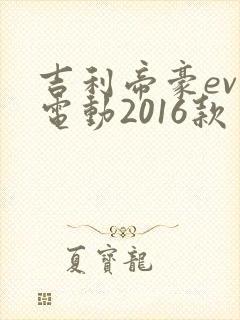 吉利帝豪ev
電動2016款
夏寳龍